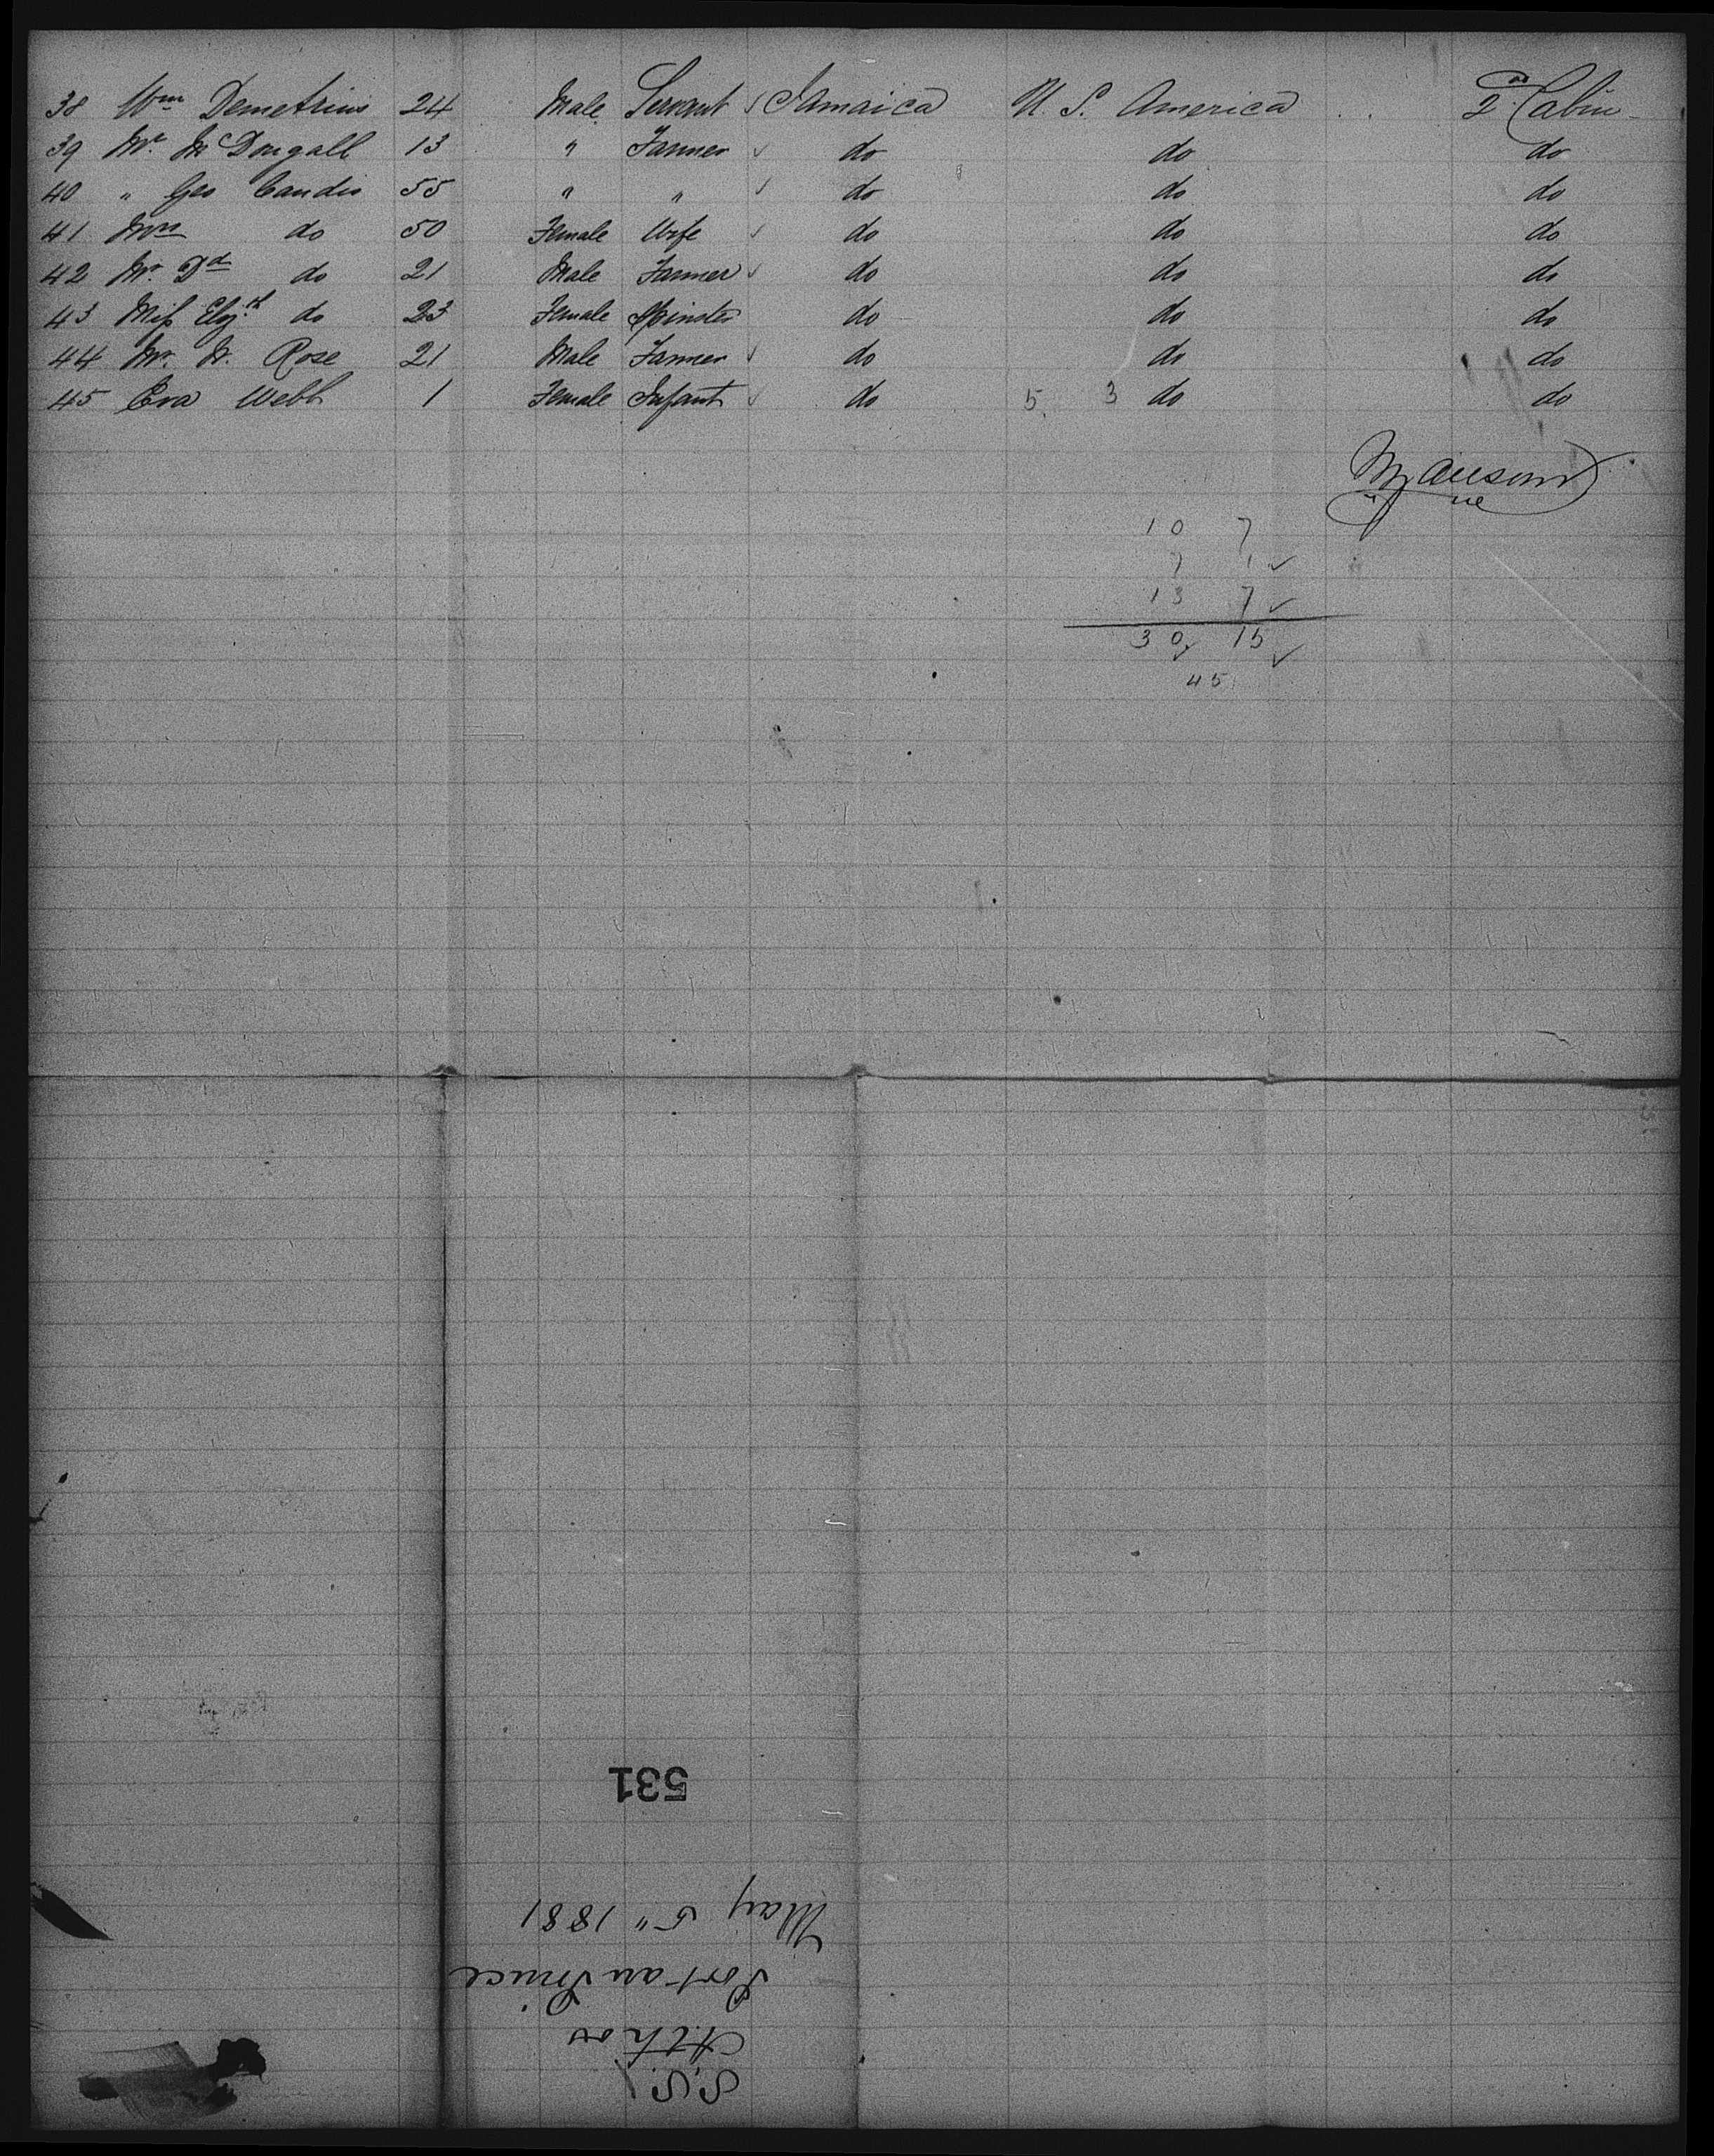 38 Wm Demetrius 24 Male Servant ✓ Jamaica U. S. America 2nd Cabin
39 Mr. Mc Dougall 13 " Farmer ✓ do do do
40 " Geo Candis 55 " " ✓ do do do
41 Mrs do 50 Female Wife ✓ do do do
42 Mr. Dd do 21 Male Farmer ✓ do do do
43 Miss Elizth do 23 Female Spinster do do do
44 Mr. W. Rose 21 Male Farmer ✓ do do do
45 Eva Webb 1 Female Infant ✓ do 5. 3 do do
10 7
7 1 ✓
13 7 ✓
30 ✓ 15 ✓
45
531
S.S.
Athos
Port au Prince
May 5" 1881